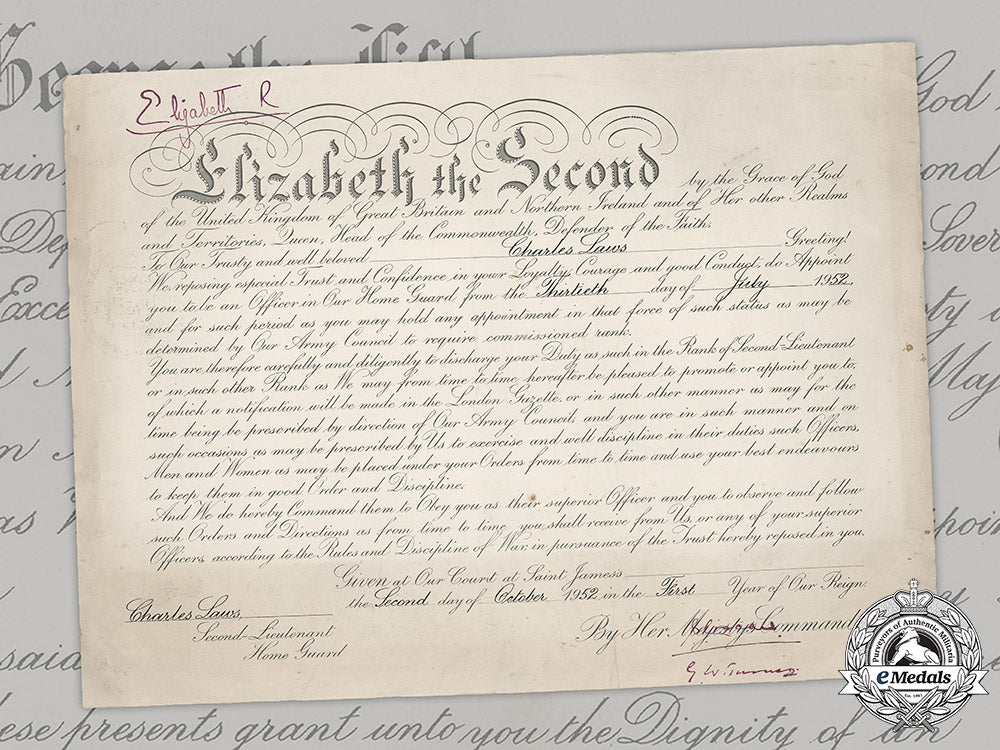 Elizabeth R
Elizabeth the Second by the Grace of God
of the United Kingdom of Great Britain and Northern Ireland and of Her other Realms
and Territories, Queen, Head of the Commonwealth, Defender of the Faith.
To Our Trusty and well beloved Charles Laws Greeting!
We, reposing especial Trust and Confidence in your Loyalty, Courage and good Conduct, do Appoint
you to be an Officer in Our Home Guard from the Thirtieth day of July 1952,
and for such period as you may hold any appointment in that force of such status as may be
determined by Our Army Council to require commissioned rank.
You are therefore carefully and diligently to discharge your Duty as such in the Rank of Second-Lieutenant
or in such other Rank as We may from time to time hereafter be pleased to promote or appoint you to,
of which a notification will be made in the London Gazette, or in such other manner as may for the
time being be prescribed by direction of Our Army Council, and you are in such manner and on
such occasions as may be prescribed by Us to exercise and well discipline in their duties such Officers,
Men and Women as may be placed under your Orders from time to time and use your best endeavours
to keep them in good Order and Discipline.
And We do hereby Command them to Obey you as their superior Officer and you to observe and follow
such Orders and Directions as from time to time you shall receive from Us, or any of your superior
Officers, according to the Rules and Discipline of War, in pursuance of the Trust hereby reposed in you.
Given at Our Court at Saint James's
the Second day of October 1952 in the First Year of Our Reign.
Charles Laws,
Second-Lieutenant
Home Guard
By Her Command
G W Turner
Purveyors of Authentic Militaria
eMedals
these presents grant unto you the Dignity of an